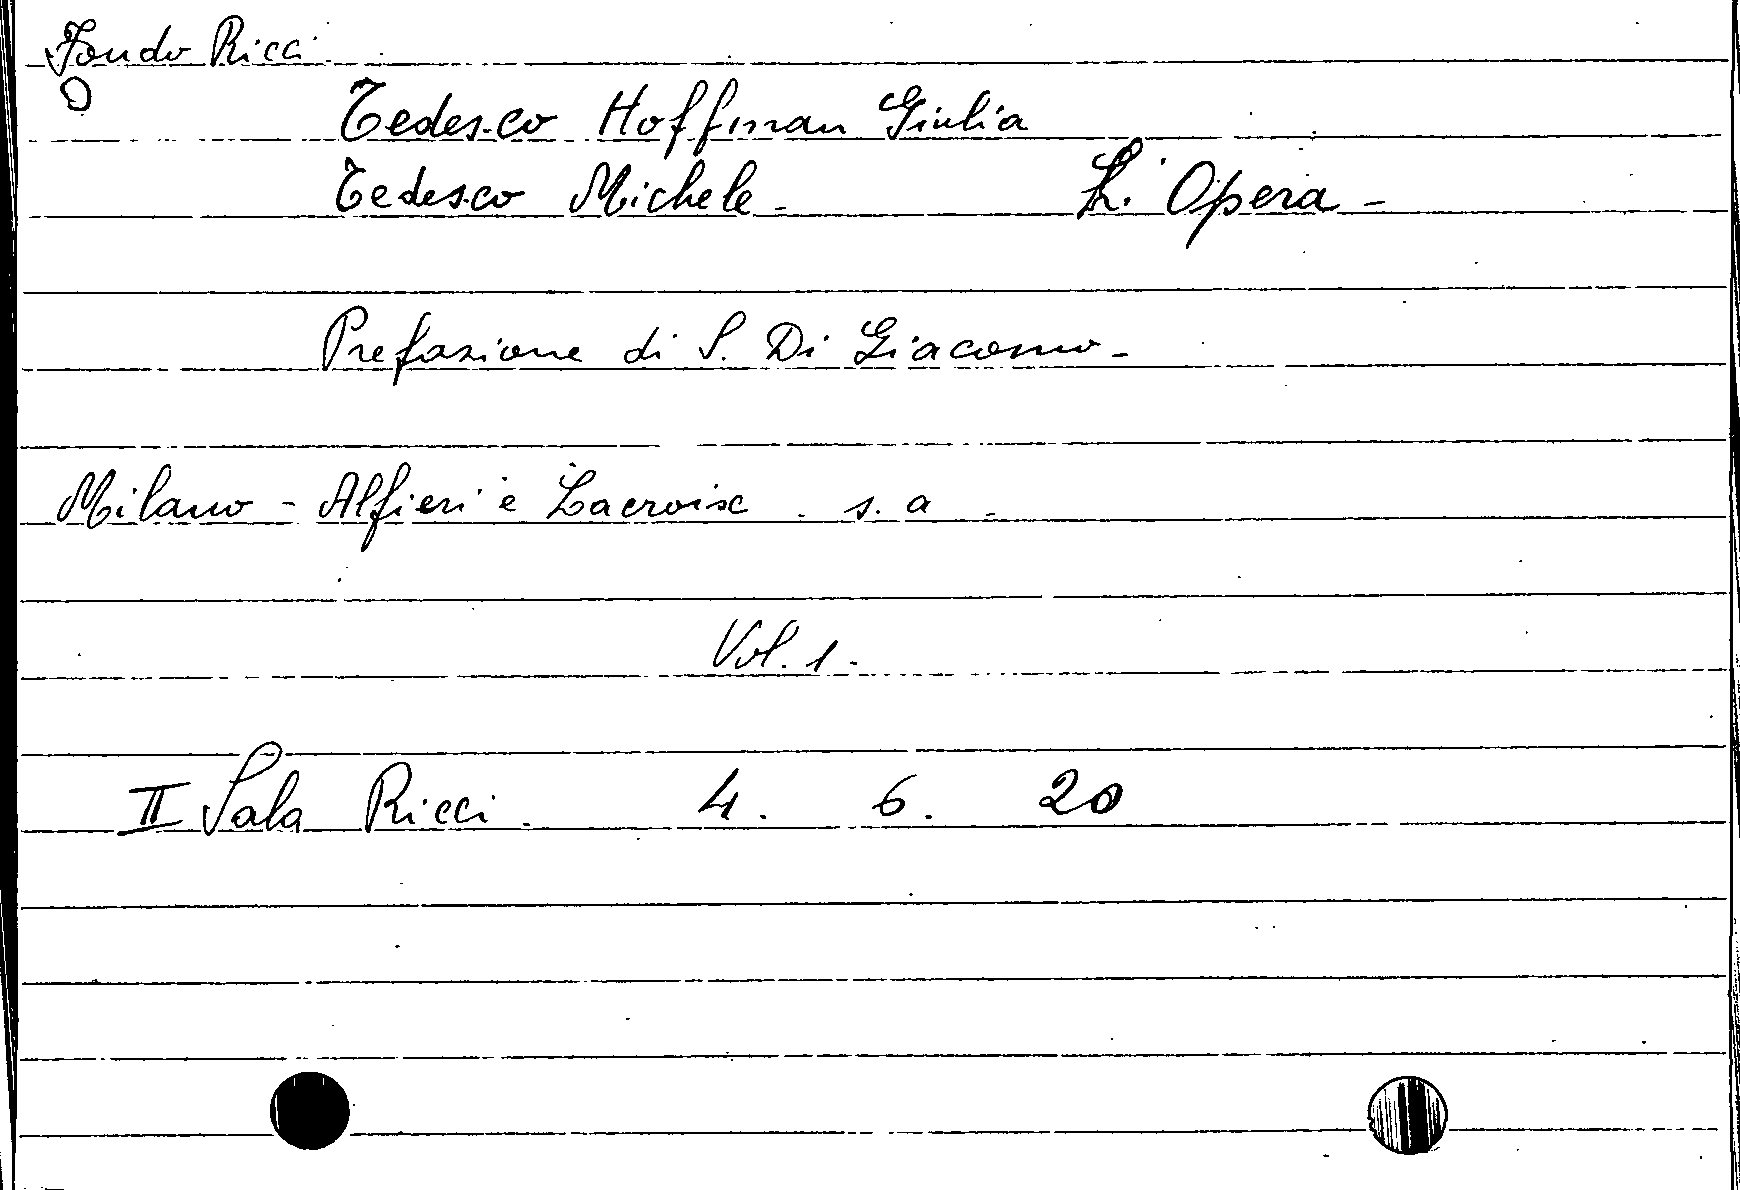 Fondo Ricci
Tedesco Hoffman Giulia
Tedesco Michele - L'Opera -
Prefazione di S. Di Giacomo -
Milano - Alfieri e Lacroix . s. a -
Vol. 1 -
II Sala Ricci . 4. 6. 20